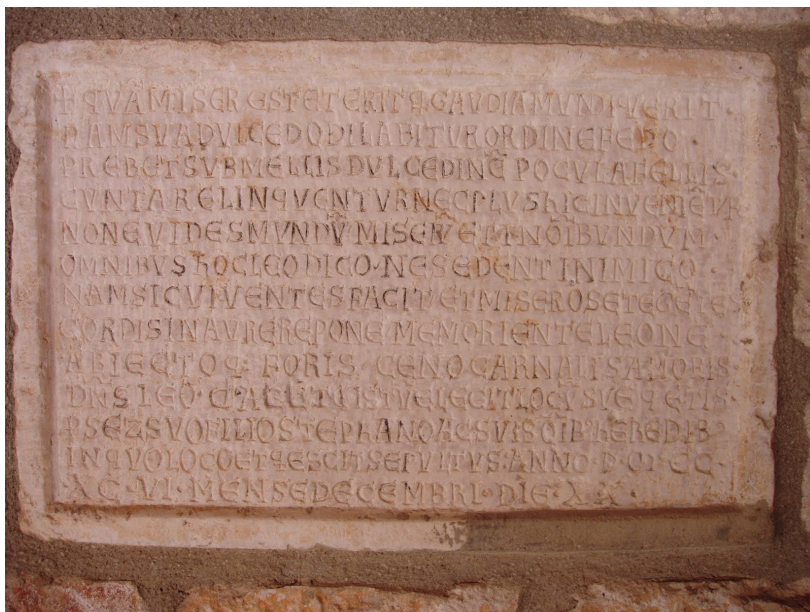 + QVÃ MISER EST ET ERIT Q GAVDIA MVNDI QVERIT ·
NAM SVA DVLCEDO DILABITVR ORDINE FEDO ·
PREBET SVB MELLIS DVLCEDINẼ POCVLA FELLIS
CVNTA RELINQVENTVR NEC PLVS hIC INVENIẼTVR
NONE VIDES MVNDŨ MISERV̄ ET
OMNIBVS hOC LEO DICO · NE SEDENTI INIMICO
NAM SIC VIVENTES FACIT ET MISEROS ET EGẼTES
CORDIS IN AVRE REPONE ME MORIENTE LEONE
ABIECTO Q FORIS CENO CARNALIS AMORIS ·
DÑS LEO ISTVE LEGIT LOCV̄ SVE QETIS ·
P SE Z SVO FILIO STEPhANO AC SVIS ÕIB hEREDIB
IN QVO LOCO ET SEPVLTVS · ANNO D CI CC
XC · VI · MENSE DECEMBRI · DIE · XX ·